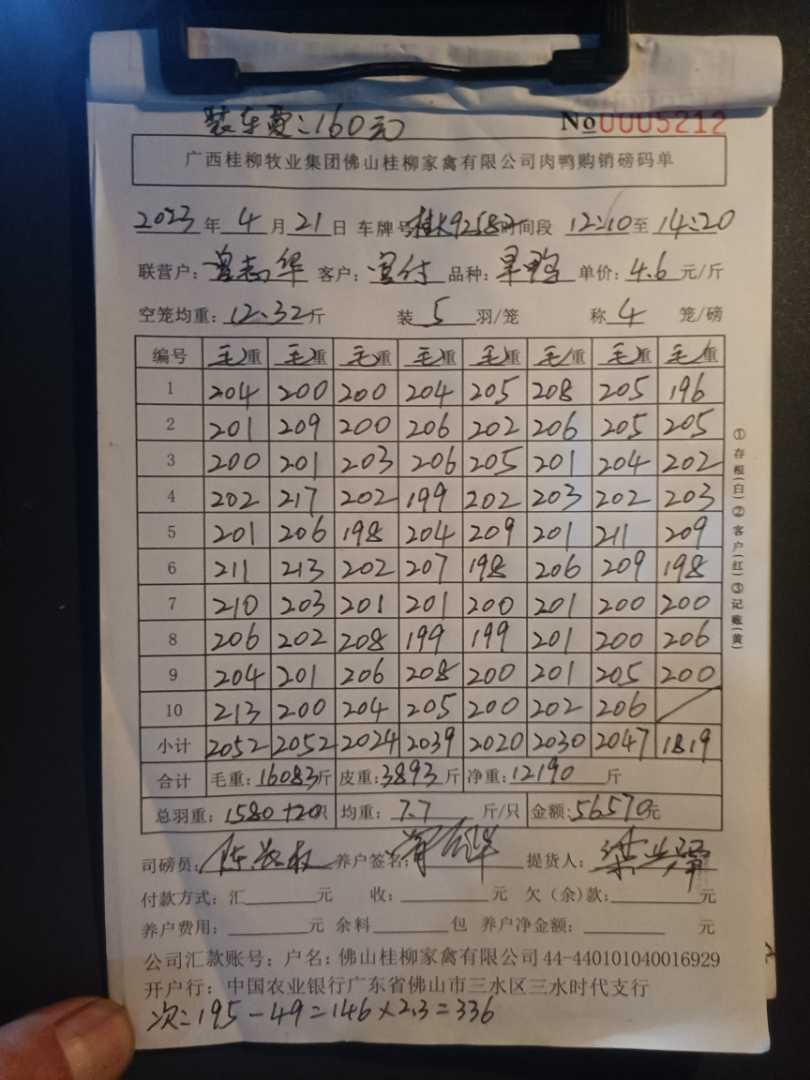 装车费:160元
No0005212
广西桂柳牧业集团佛山桂柳家禽有限公司肉鸭购销磅码单
2023年4月21日 车牌号 时间段 12:10至14:20
联营户: 曾志华 客户: 品种: 旱鸭 单价: 4.6元/斤
空笼均重: 12.32斤 装5羽/笼 称4笼/磅
编号 毛重 毛重 毛重 毛重 毛重 毛重 毛重 毛重
1 204 200 200 204 205 208 205 196
2 201 209 200 206 202 206 205 205
3 200 201 203 206 205 201 204 202
4 202 217 202 199 202 203 202 203
5 201 206 198 204 209 201 211 209
6 211 213 202 207 198 206 209 198
7 210 203 201 201 200 201 200 200
8 206 202 208 199 199 201 200 206
9 204 201 206 208 200 201 205 200
10 213 200 204 205 200 202 206
小计 2052 2052 2024 2039 2020 2030 2047 1819
合计 毛重: 16083斤 皮重: 3893斤 净重: 12190斤
总羽重: 1580+20只 均重: 7.7斤/只 金额: 56570元
司磅员: 养户签名: 提货人:
付款方式: 汇 元 收: 元 欠(余)款: 元
养户费用: 元 余料 包 养户净金额: 元
公司汇款账号: 户名: 佛山桂柳家禽有限公司44-440101040016929
开户行: 中国农业银行广东省佛山市三水区三水时代支行
次:195-49=146×2.3=336
①存根(白)②客户(红)③记账(黄)